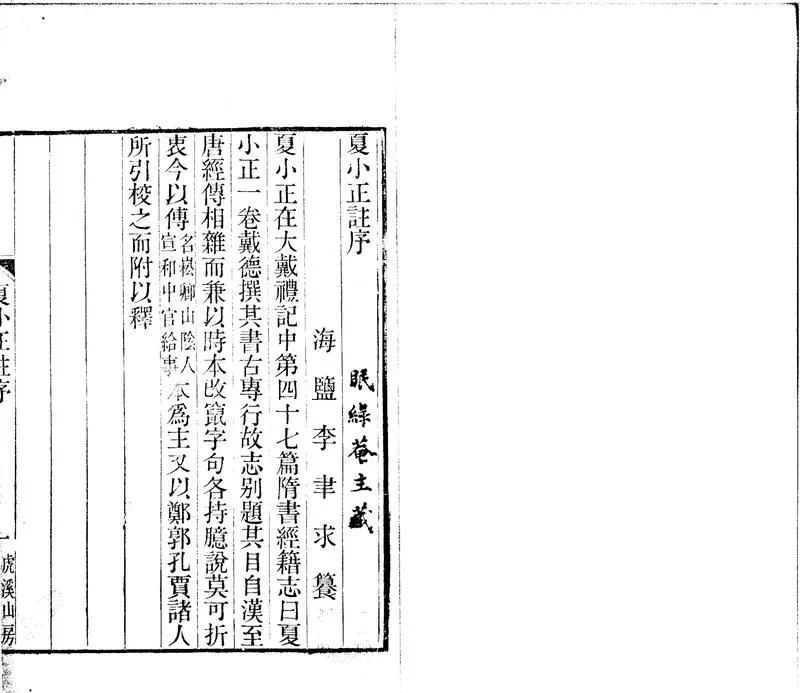 夏小正註序
眠綠菴主藏
海鹽李聿求纂
夏小正在大戴禮記中第四十七篇隋書經籍志曰夏
小正一卷戴德撰其書古專行故志别題其目自漢至
唐經傳相雜而兼以時本改竄字句各持臆說莫可折
衷今以傳名崧卿山陰人宣和中官給事本爲主又以鄭郭孔賈諸人
所引梭之而附以釋
夏小正註序
一
虎溪山房